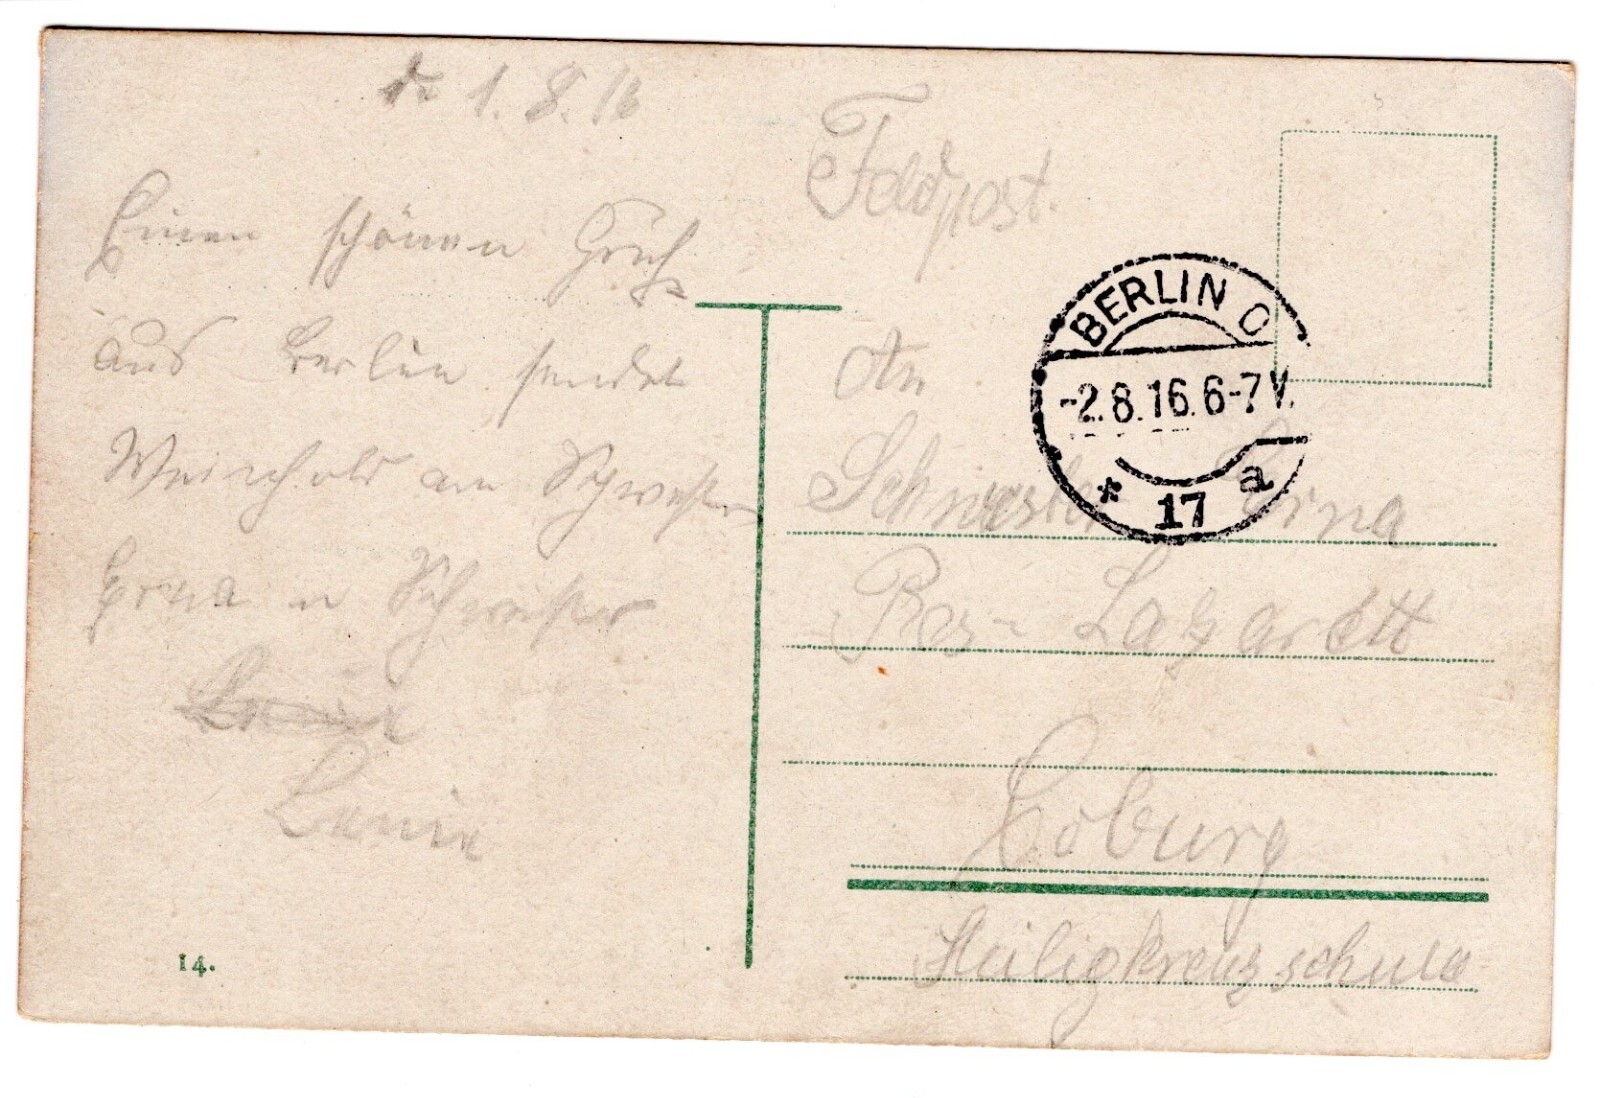 d. 1.8.16
Einen schönen Gruß
aus Berlin sendet
Weinhold an Schwester
Erna u Schwester
Feldpost.
BERLIN O
-2.8.16.6-7V.
* 17 a
An
Schwester Erna
Res- Lazarett
Coburg
Heiligkreuzschule
14.